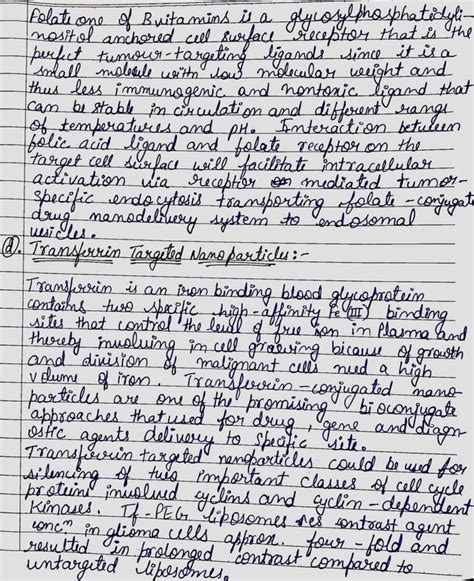 Folate one of B vitamins is a glycosylphosphatidyli-
nositol anchored cell surface receptor that is the
perfect tumour-targeting ligands since it is a
small molecule with low molecular weight and
thus less immunogenic and nontoxic ligand that
can be stable in circulation and different range
of temperatures and pH. Interaction between
folic acid ligand and folate receptor on the
target cell surface will facilitate intracellular
activation via receptor mediated tumor-
specific endocytosis transporting folate-conjugate
drug nanodelivery system to endosomal
vesicles.
d. Transferrin Targeted Nanoparticles:-
Transferrin is an iron binding blood glycoprotein
contains two specific high-affinity Fe(III) binding
sites that control the level of free ion in Plasma and
thereby involving in cell growing bicause of growth
and division of malignant cells need a high
volume of iron. Transferrin-conjugated nano-
particles are one of the promising bioconjugate
approaches that used for drug, gene and diagn-
ostic agents delivery to specific site.
Transferrin targeted nanoparticles could be used for
silencing of two important classes of cell cycle
proteins involved cyclins and cyclin-dependent
Kinases. Tf-PEG-liposomes ↑es contrast agent
concⁿ in glioma cells approx. four-fold and
resulted in prolonged contrast compared to
untargeted liposomes.